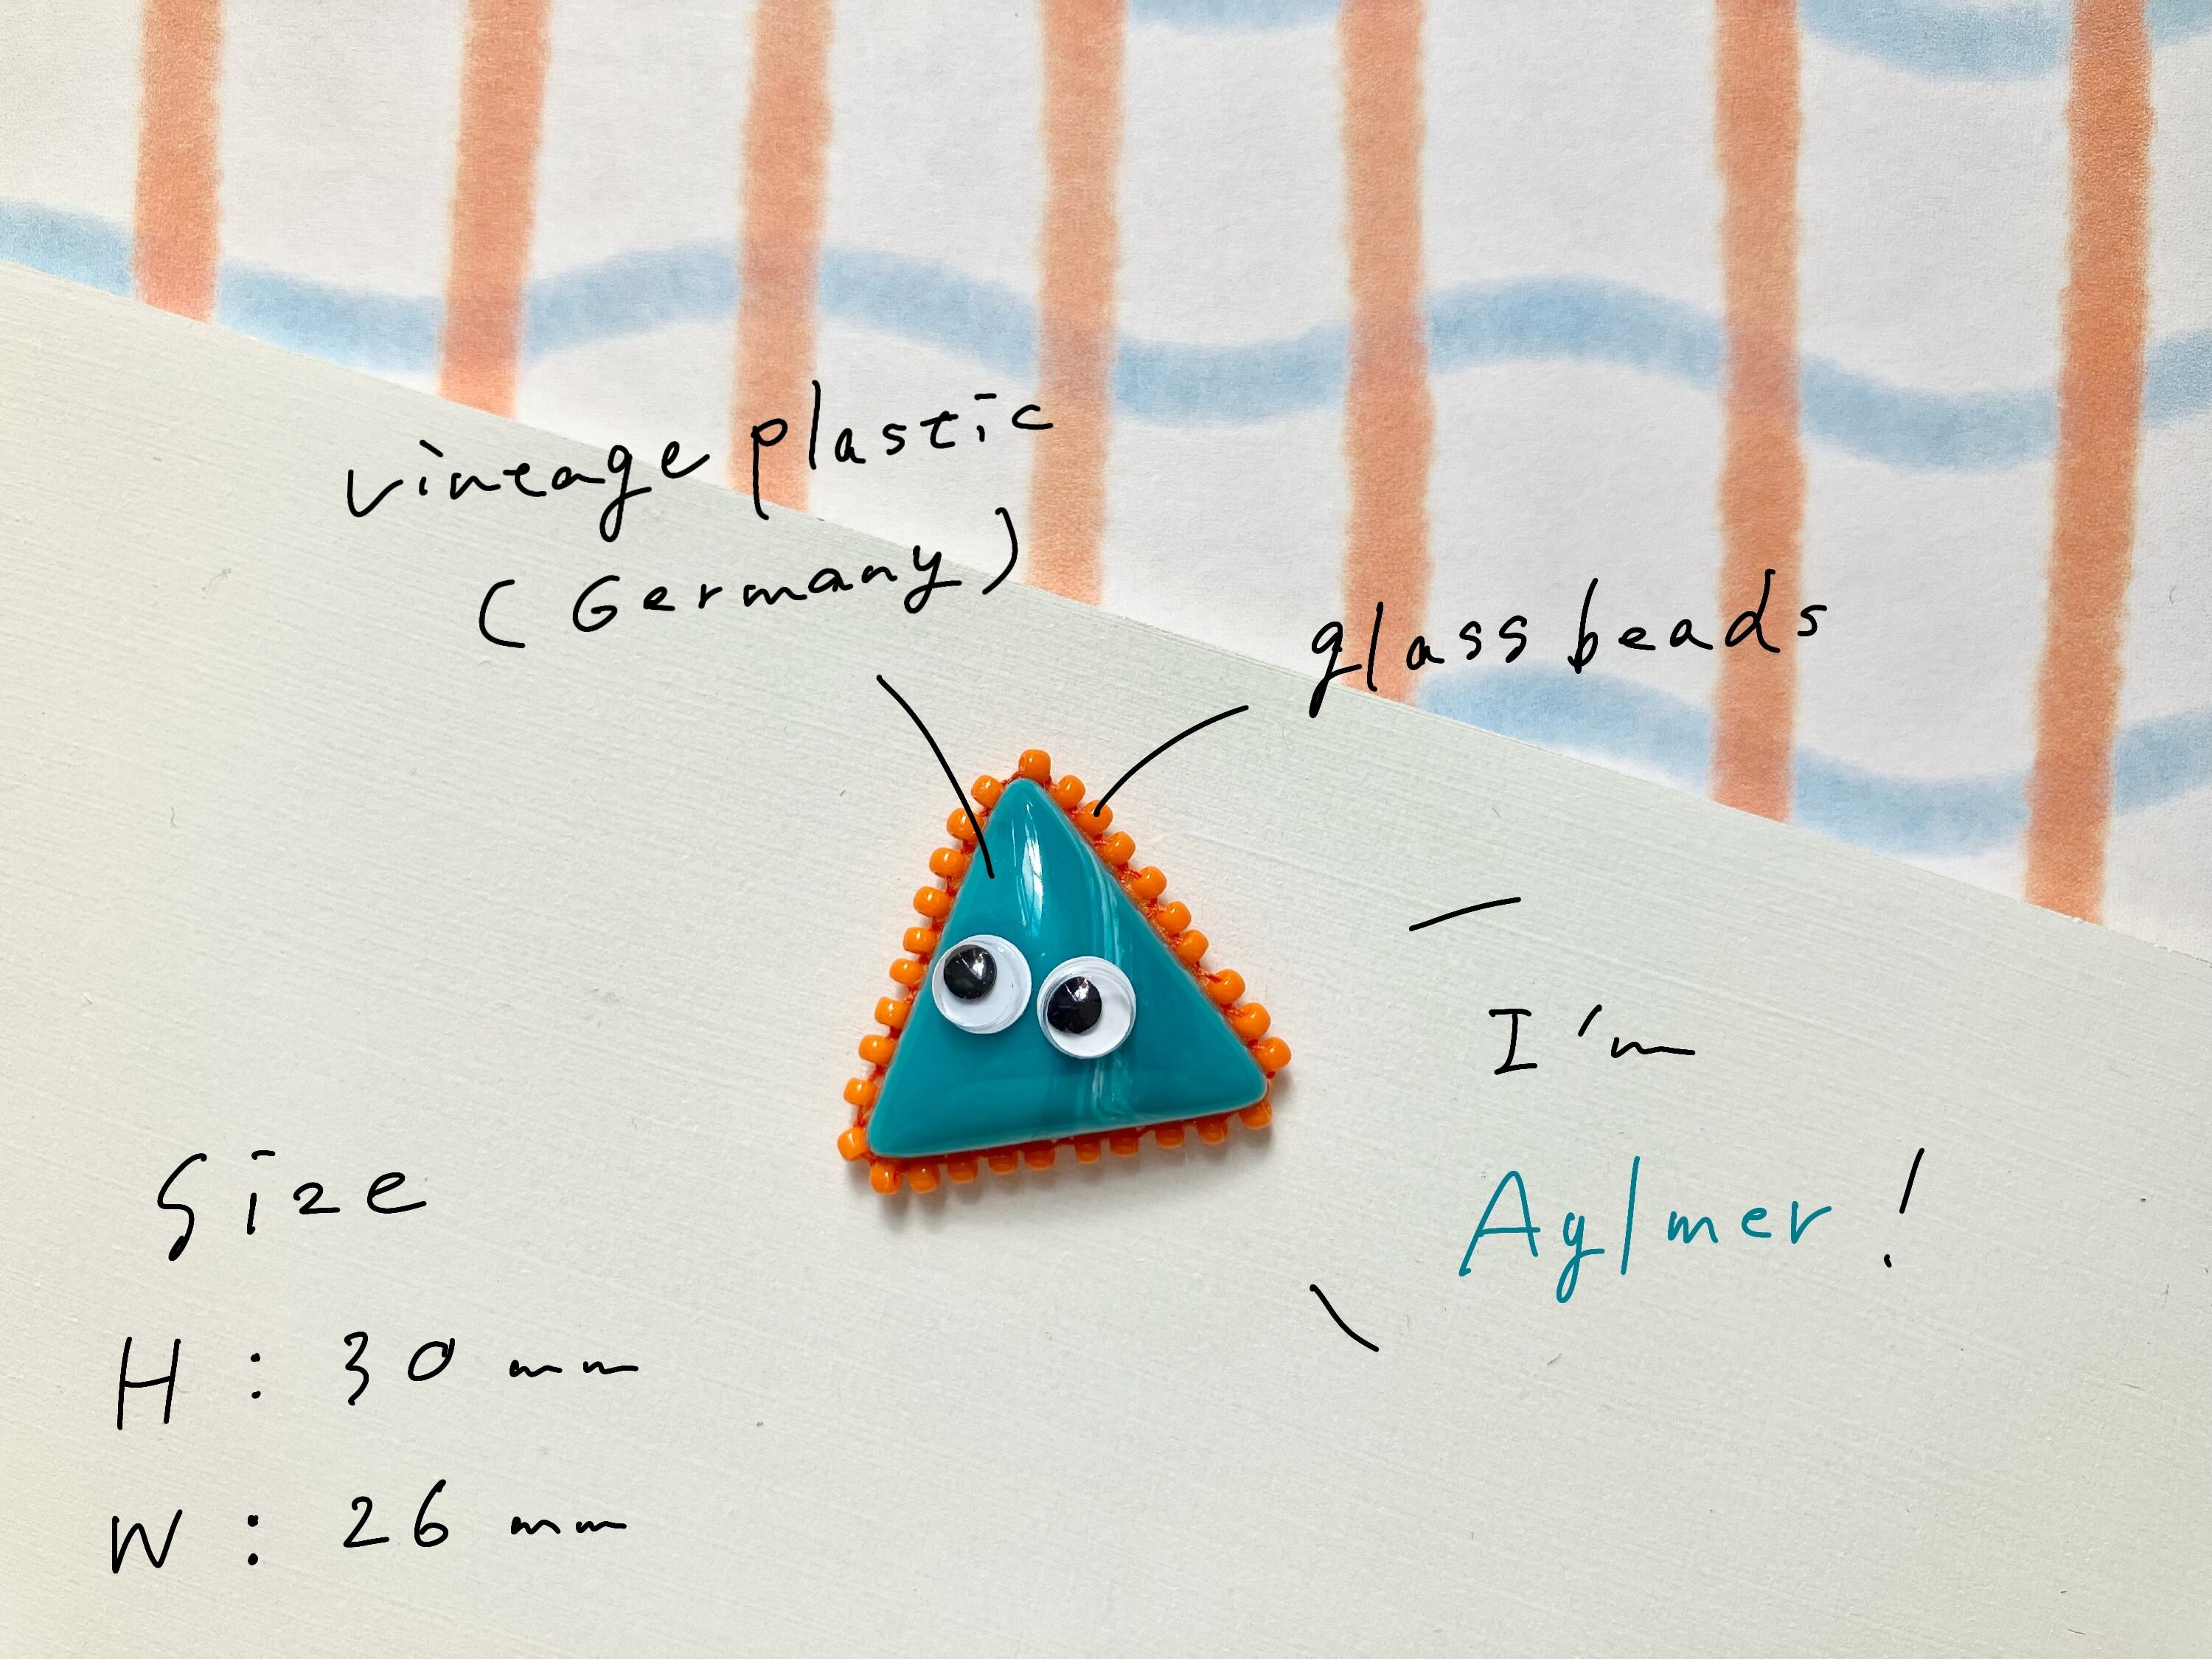 vintage plastic
(Germany)
glass beads
I'm
Aylmer!
Size
H : 30 mm
W : 26 mm